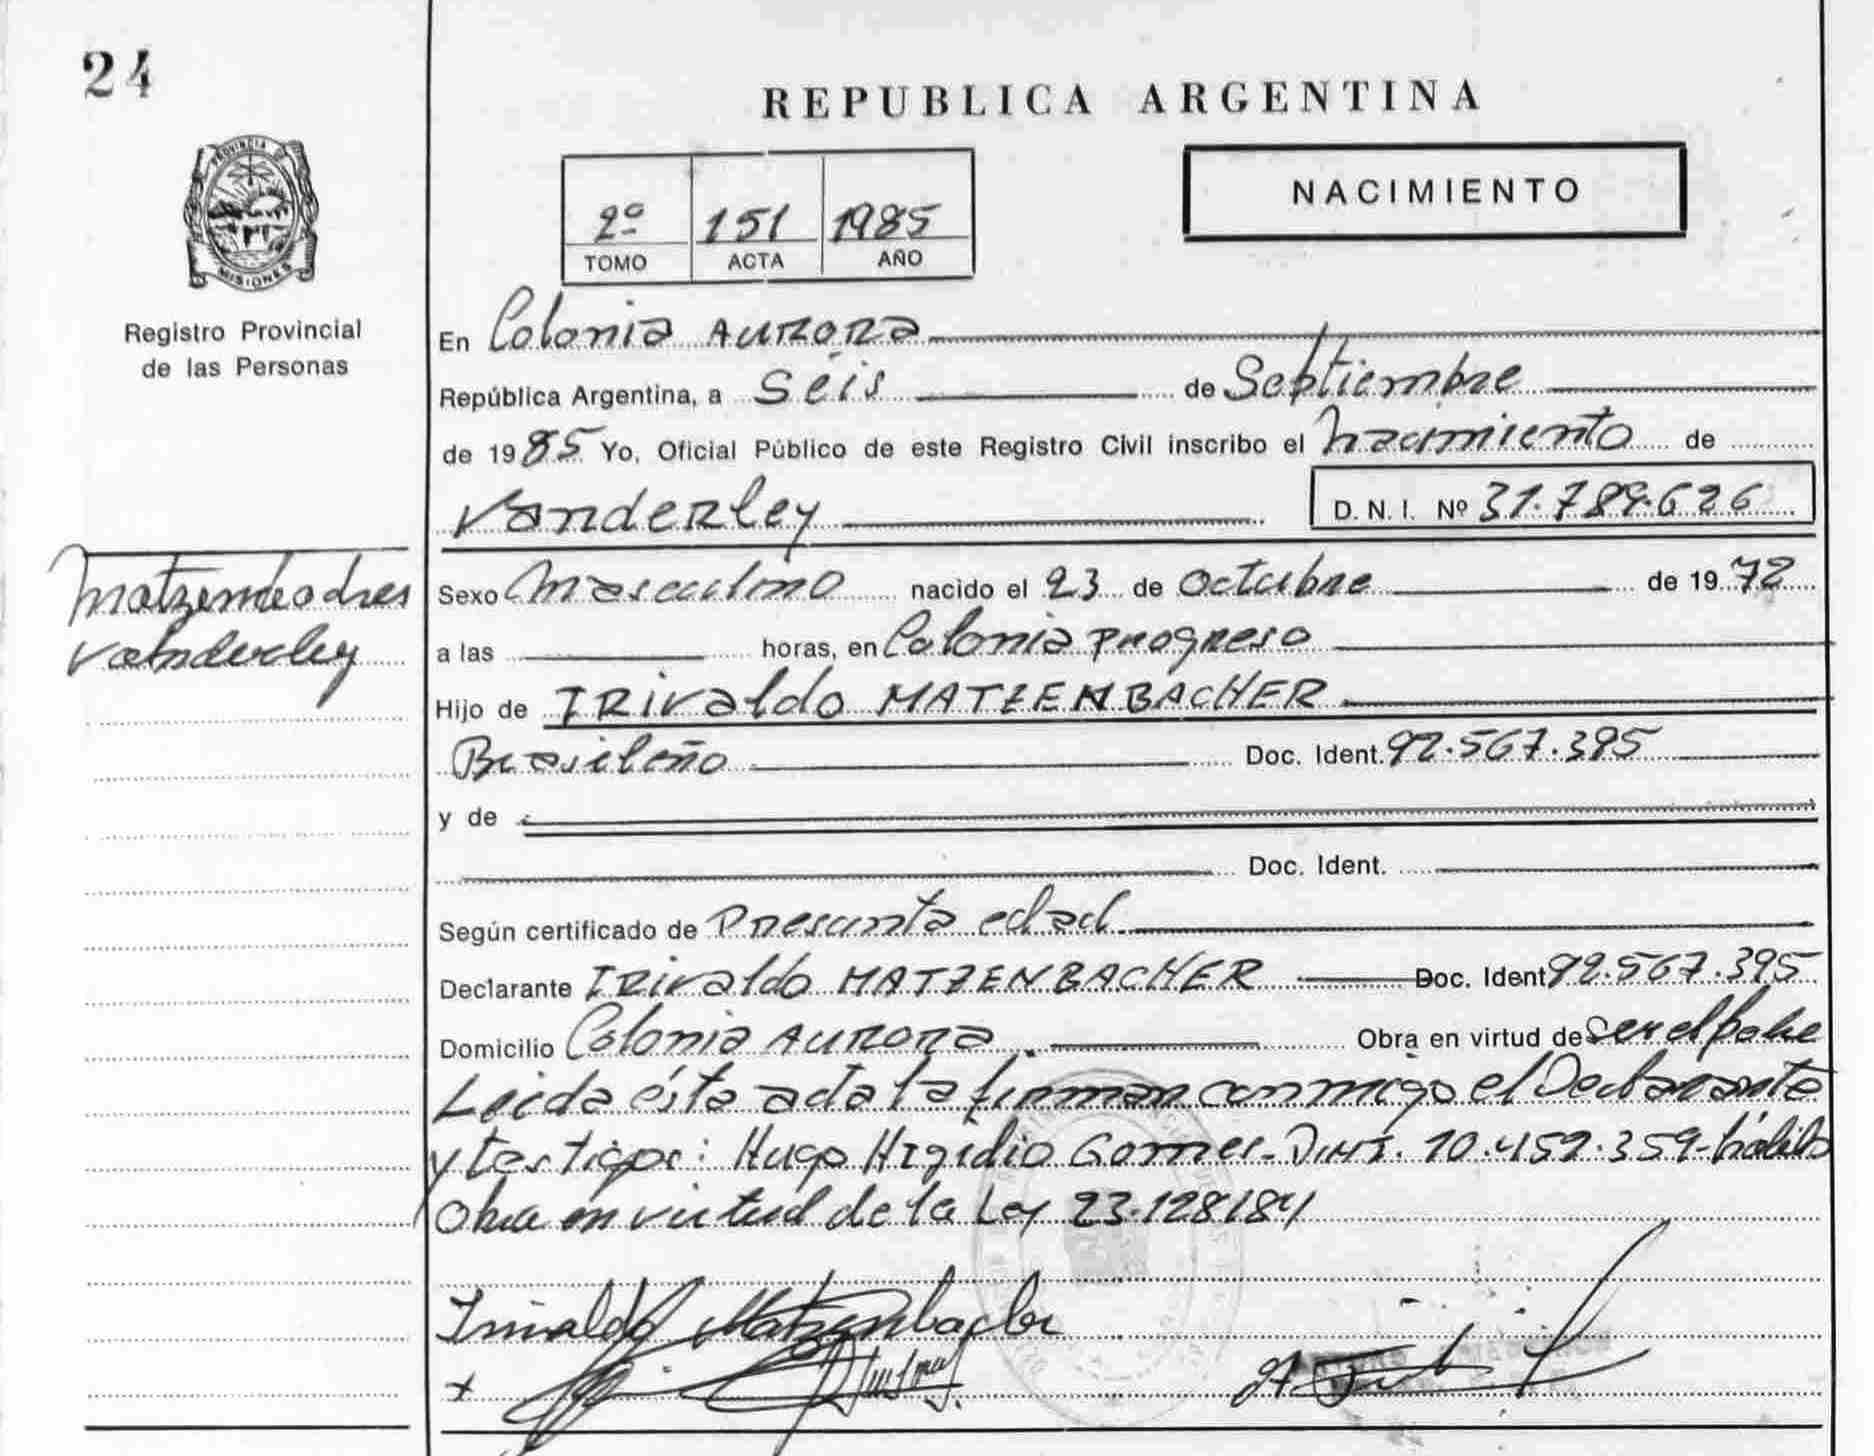 24
REPUBLICA ARGENTINA
NACIMIENTO
2º 151 1985
TOMO ACTA AÑO
PROVINCIA DE MISIONES
Registro Provincial
de las Personas
En Colonia Aurora
República Argentina, a Seis de Septiembre
de 1985 Yo, Oficial Público de este Registro Civil inscribo el nacimiento de
Vanderley D. N. I. Nº 31.789.626
Vanderley
Sexo Masculino nacido el 23 de Octubre de 1972
a las horas, en Colonia Progreso
Hijo de IRivaldo MATZENBACHER
Brasileño Doc. Ident. 92.567.395
y de
Doc. Ident.
Según certificado de Presunta edad
Declarante IRivaldo MATZENBACHER Doc. Ident 92.567.395
Domicilio Colonia Aurora Obra en virtud de Ser el padre
Leida ésta acta la firman conmigo el Declarante
y testigos: Hugo Higidio Gomes - D.N.I. 10.459.359 - hábil
Obra en virtud de la Ley 23.128/84
Irivaldo Matzenbacher